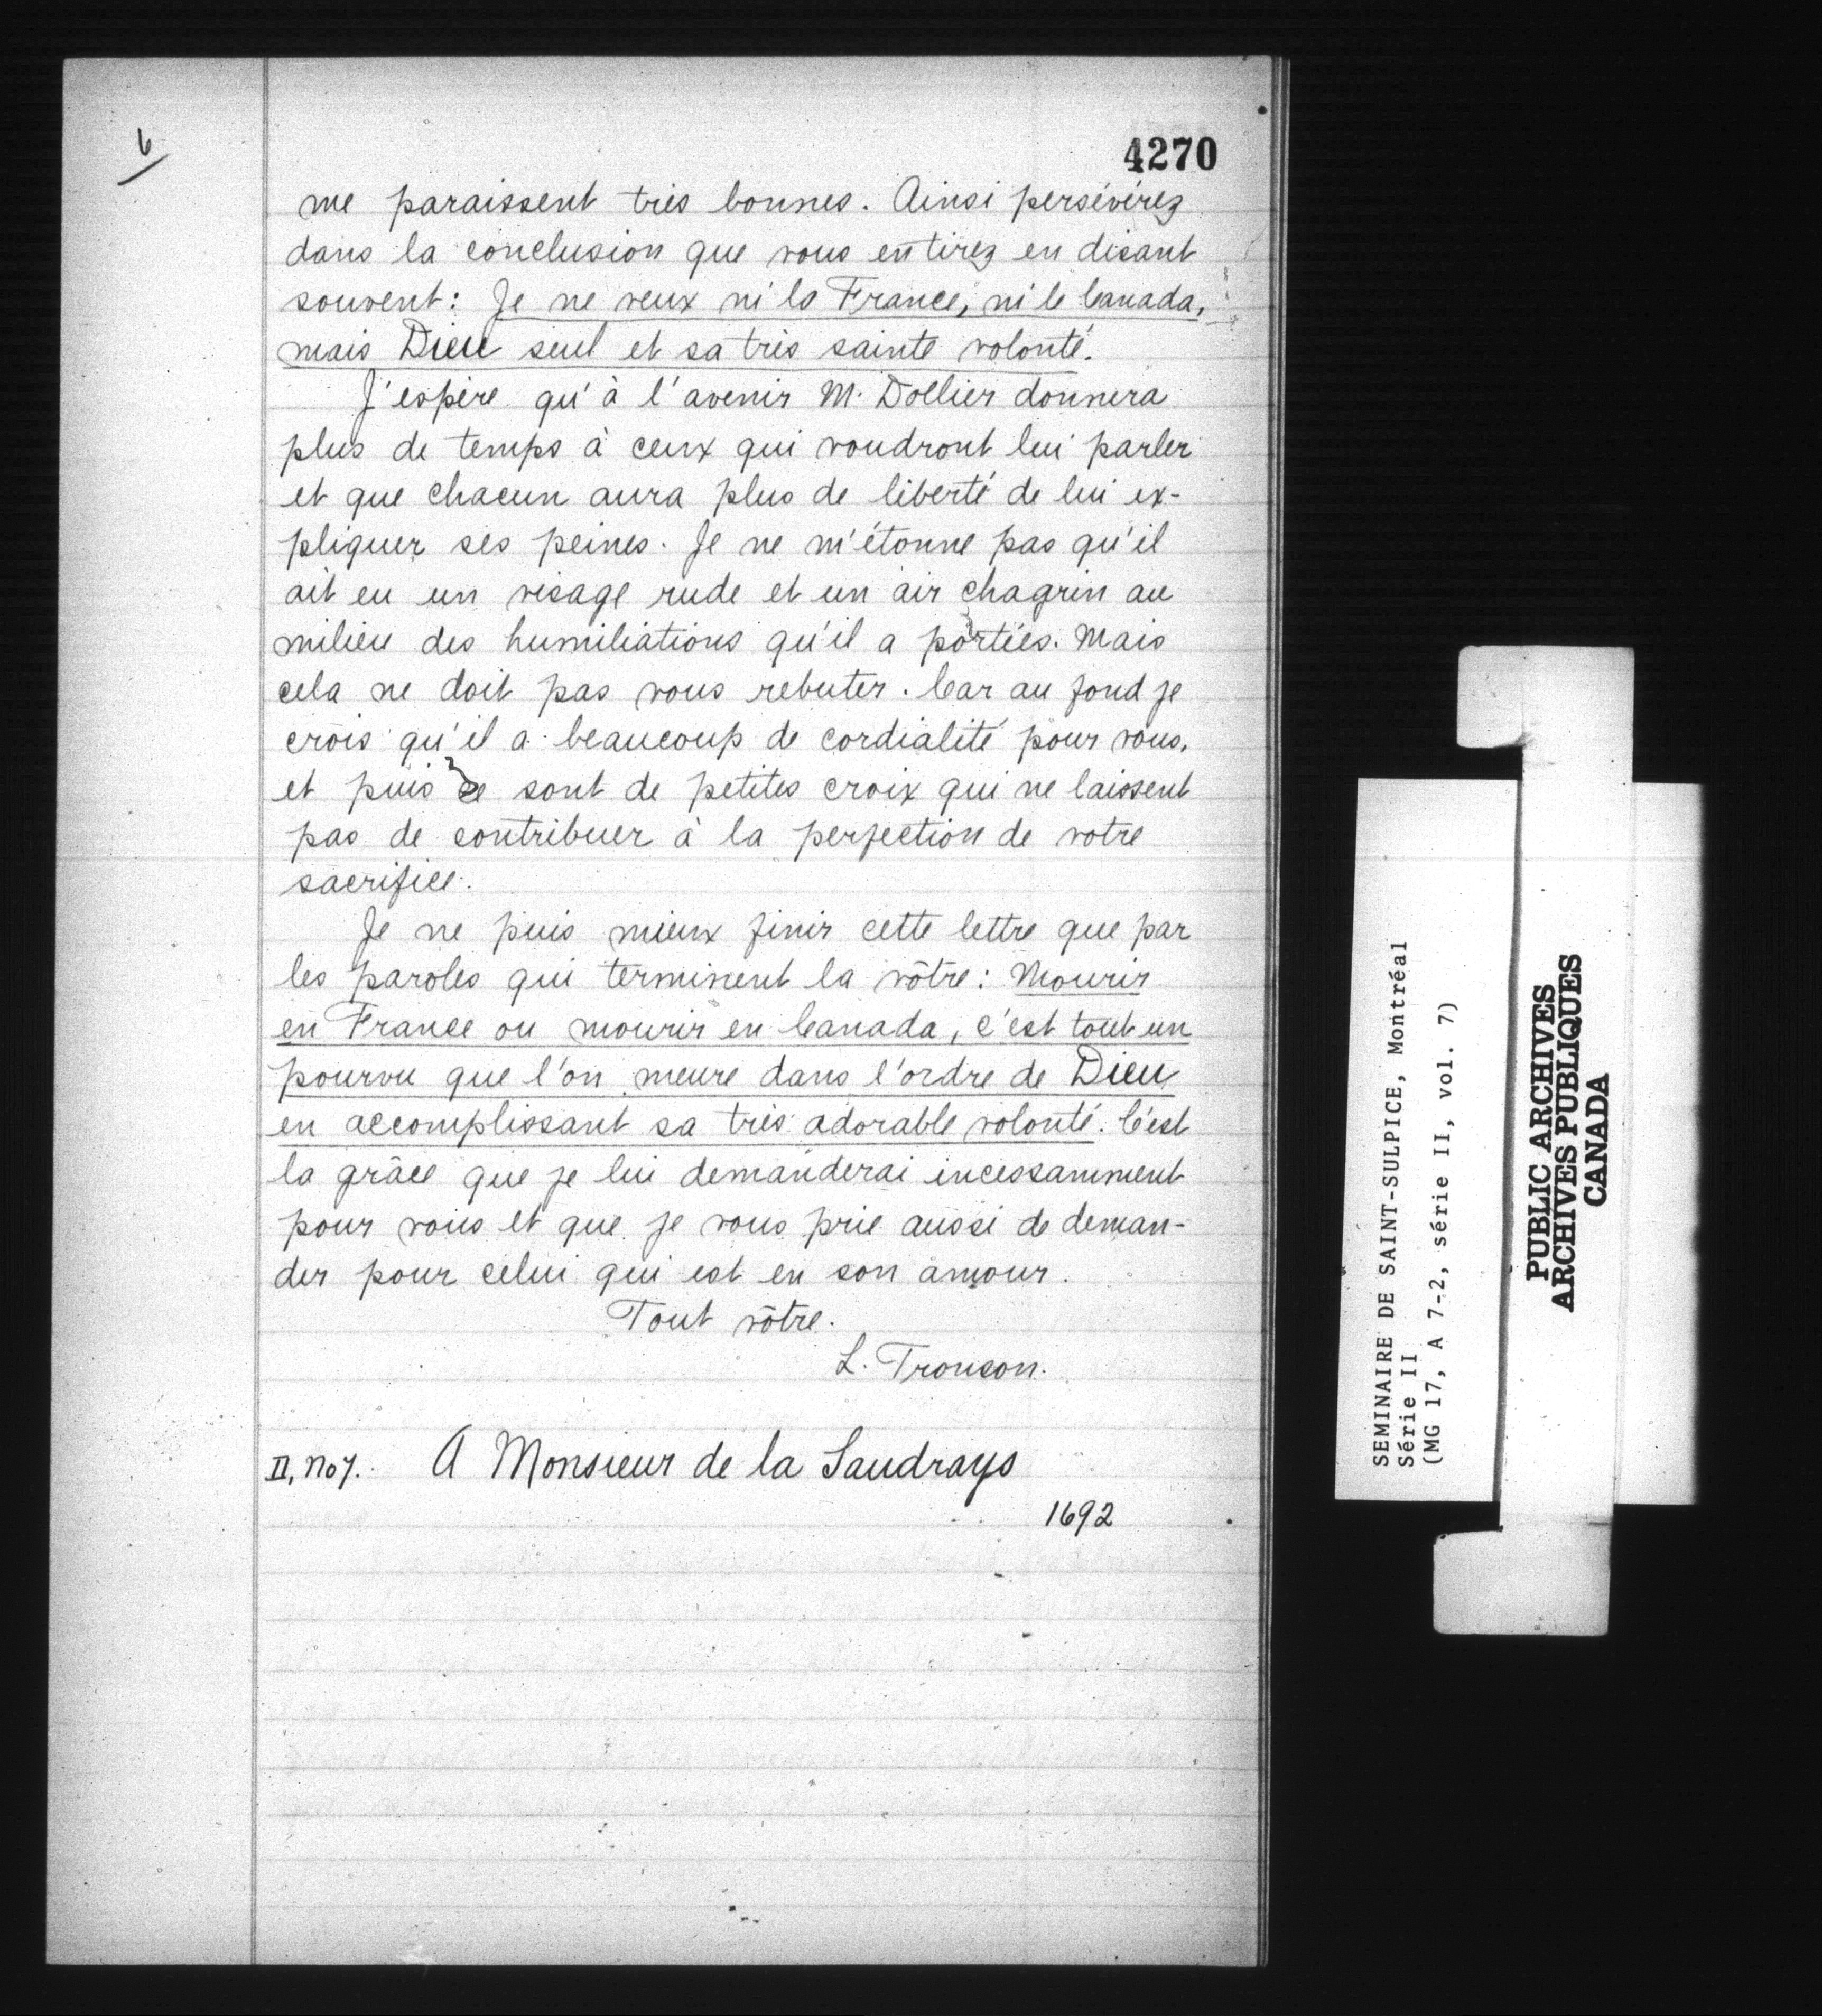 6
4270
me paraissent très bonnes. Ainsi persévérez
dans la conclusion que vous en tirez en disant
souvent: Je ne veux ni la France, ni le Canada,
mais Dieu seul et sa très sainte volonté.
J'espère qu'à l'avenir M. Dollier donnera
plus de temps à ceux qui voudront lui parler
et que chacun aura plus de liberté de lui ex-
pliquer ses peines. Je ne m'étonne pas qu'il
ait eu un visage rude et un air chagrin au
milieu des humiliations qu'il a portées. Mais
cela ne doit pas vous rebuter. Car au fond je
crois qu'il a beaucoup de cordialité pour vous,
et puis ce sont de petites croix qui ne laissent
pas de contribuer à la perfection de votre
sacrifice.
Je ne puis mieux finir cette lettre que par
les paroles qui terminent la vôtre: Mourir
en France ou mourir en Canada, c'est tout un
pourvu que l'on meure dans l'ordre de Dieu
en accomplissant sa très adorable volonté. C'est
la grâce que je lui demanderai incessamment
pour vous et que je vous prie aussi de deman-
der pour celui qui est en son amour.
Tout vôtre.
L. Tronson.
II, No 7. A Monsieur de la Saudrays
1692
SEMINAIRE DE SAINT-SULPICE, Montréal
Série II
(MG 17, A 7-2, série II, vol. 7)
PUBLIC ARCHIVES
ARCHIVES PUBLIQUES
CANADA